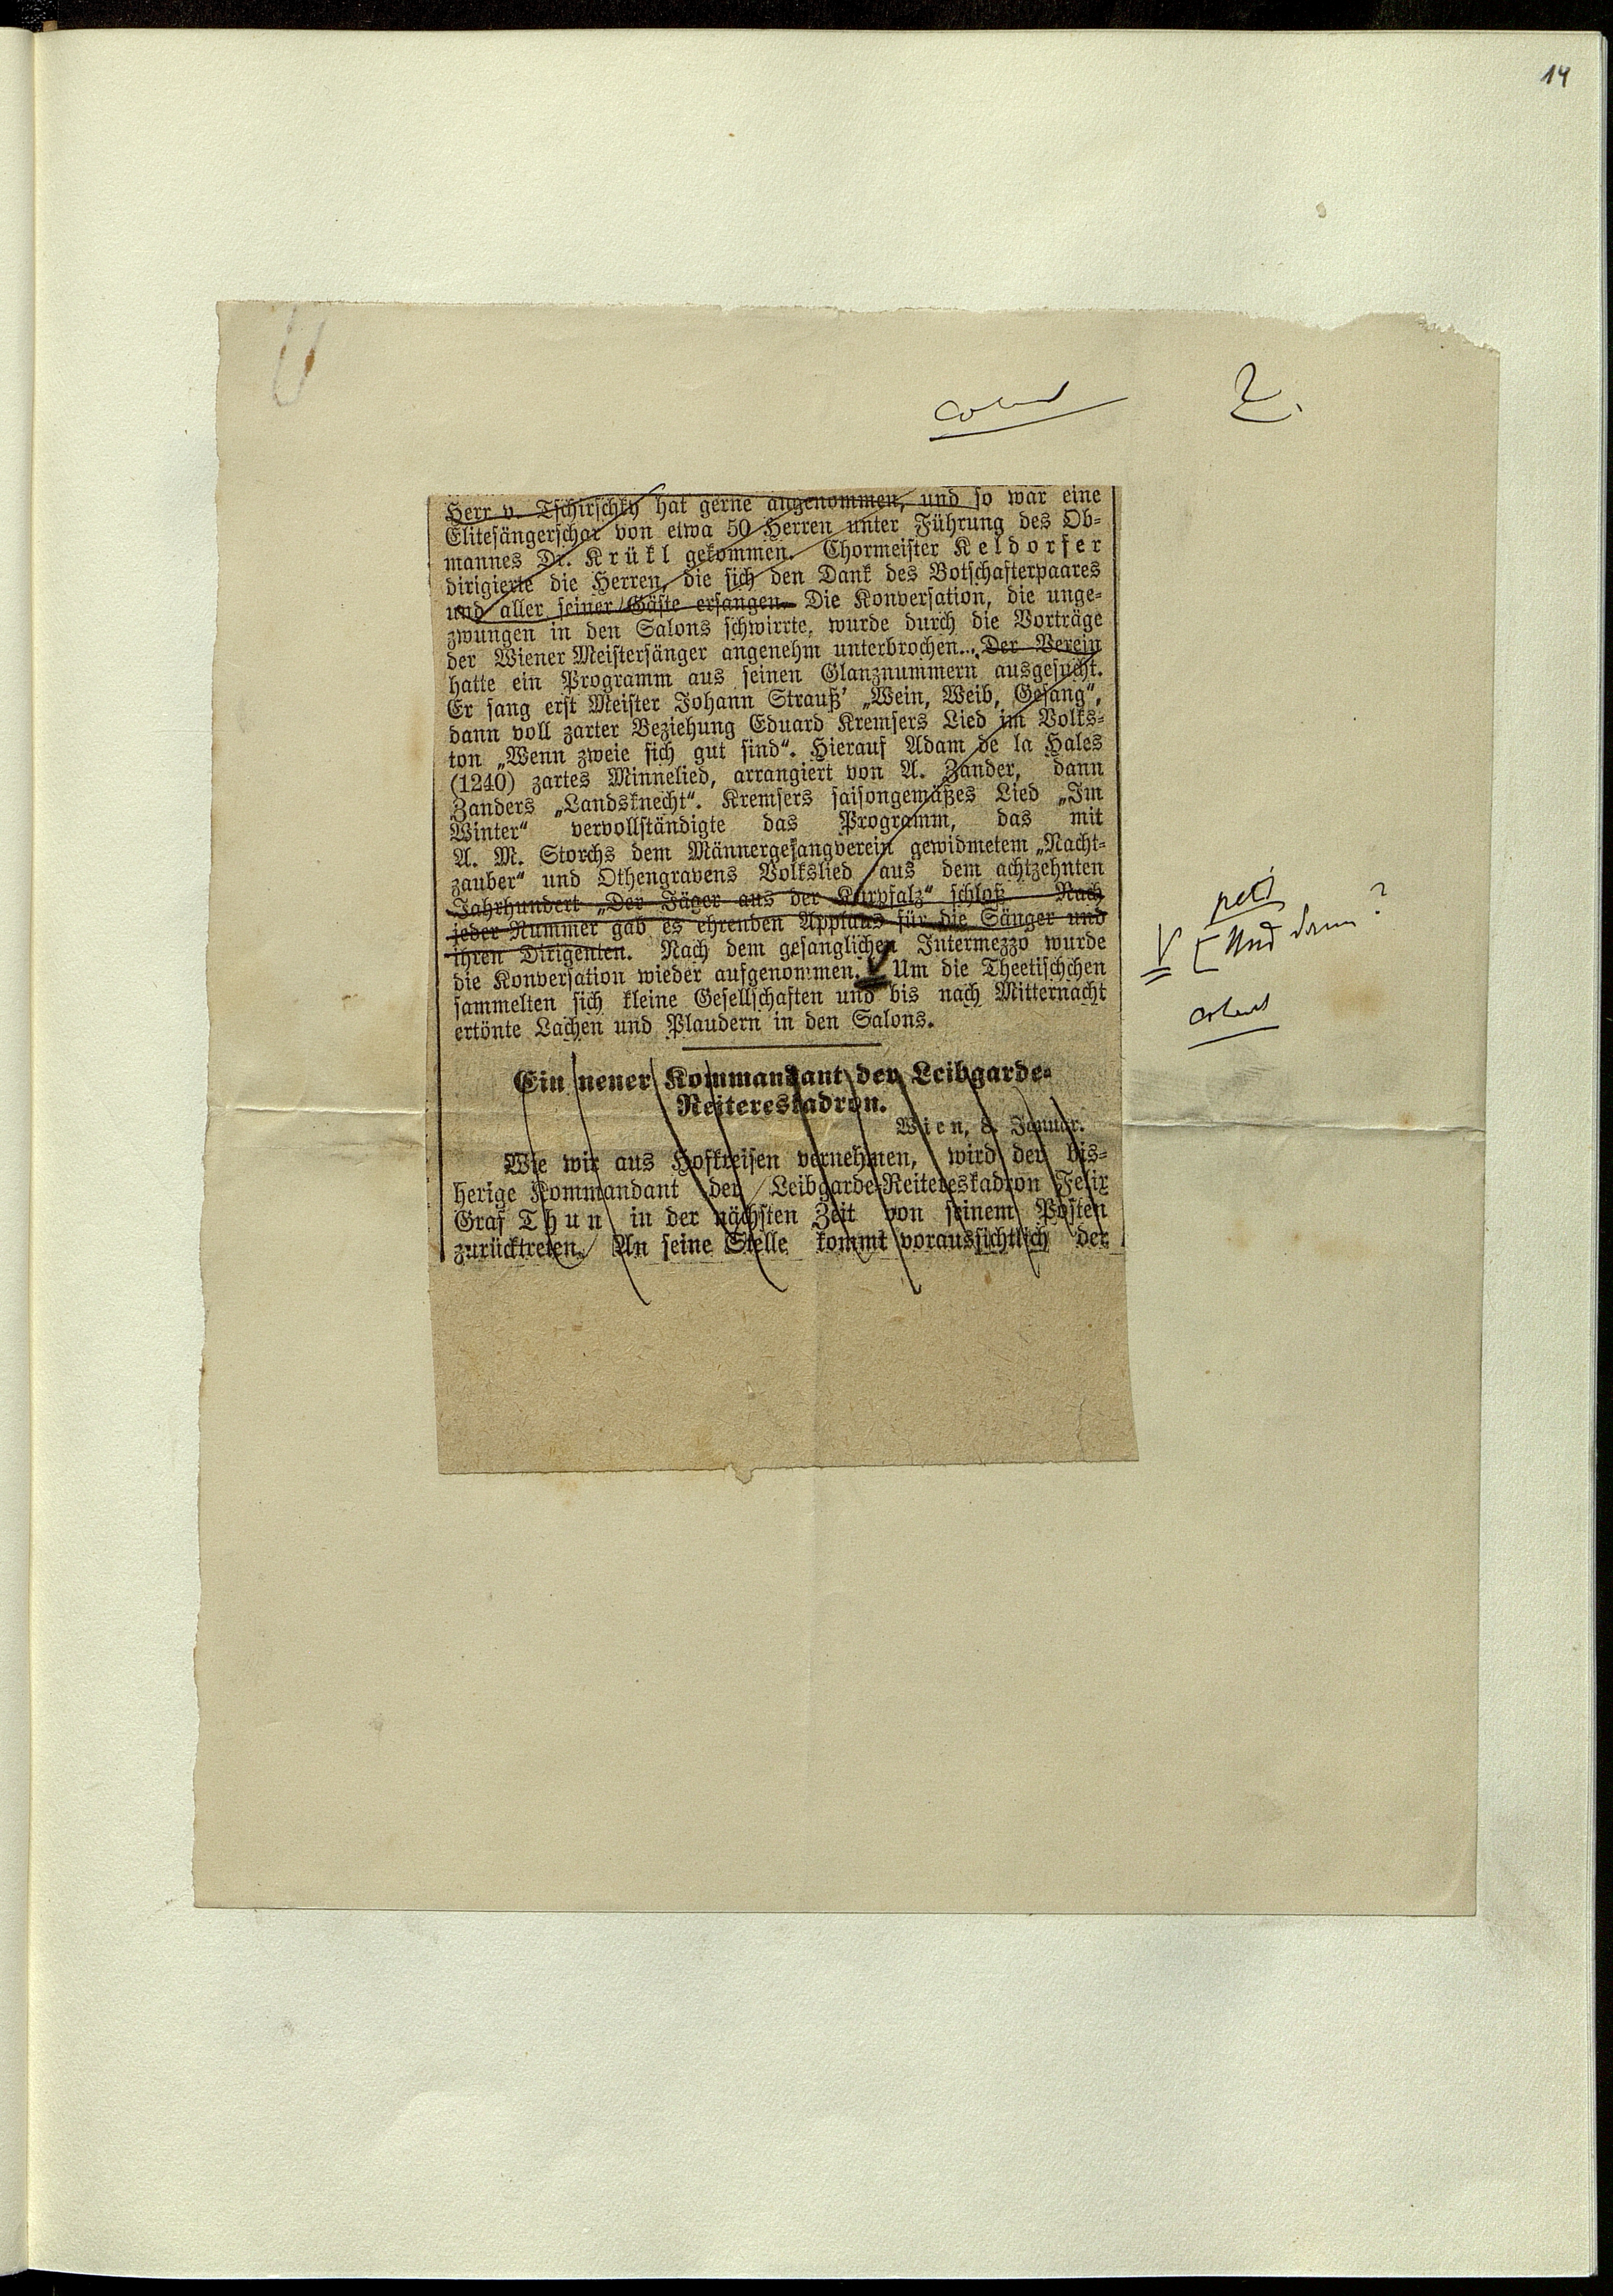 14
2.
Herr v. Tschirschky hat gerne angenommen, und so war eine
Elitesängerschar von etwa 50 Herren unter Führung des Ob-
mannes Dr. Krükl gekommen. Chormeister Keldorfer
dirigierte die Herren, die sich den Dank des Botschafterpaares
und aller seiner Gäste ersangen. Die Konversation, die unge-
zwungen in den Salons schwirrte, wurde durch die Vorträge
der Wiener Meistersänger angenehm unterbrochen... Der Verein
hatte ein Programm aus seinen Glanznummern ausgesucht.
Er sang erst Meister Johann Strauß' „Wein, Weib, Gesang“,
dann voll zarter Beziehung Eduard Kremsers Lied im Volks-
ton „Wenn zweie sich gut sind“. Hierauf Adam de la Hales
(1240) zartes Minnelied, arrangiert von A. Zander, dann
Zanders „Landsknecht“. Kremsers saisongemäßes Lied „Im
Winter“ vervollständigte das Programm, das mit
A. M. Storchs dem Männergesangverein gewidmetem „Nacht-
zauber“ und Othengravens Volkslied aus dem achtzehnten
Jahrhundert „Der Jäger aus der Kurpfalz“ schloß. Nach
jeder Nummer gab es ehrenden Applaus für die Sänger und
ihren Dirigenten. Nach dem gesanglichen Intermezzo wurde
die Konversation wieder aufgenommen. Um die Theetischchen
sammelten sich kleine Gesellschaften und bis nach Mitternacht
ertönte Lachen und Plaudern in den Salons.
petit
[Und dann?
Ein neuer Kommandant der Leibgarde-
Reitereskadron.
Wien, 8. Januar.
Wie wir aus Hofkreisen vernehmen, wird der bis-
herige Kommandant der Leibgarde-Reitereskadron Felix
Graf Thun in der nächsten Zeit von seinem Posten
zurücktreten. An seine Stelle kommt voraussichtlich der